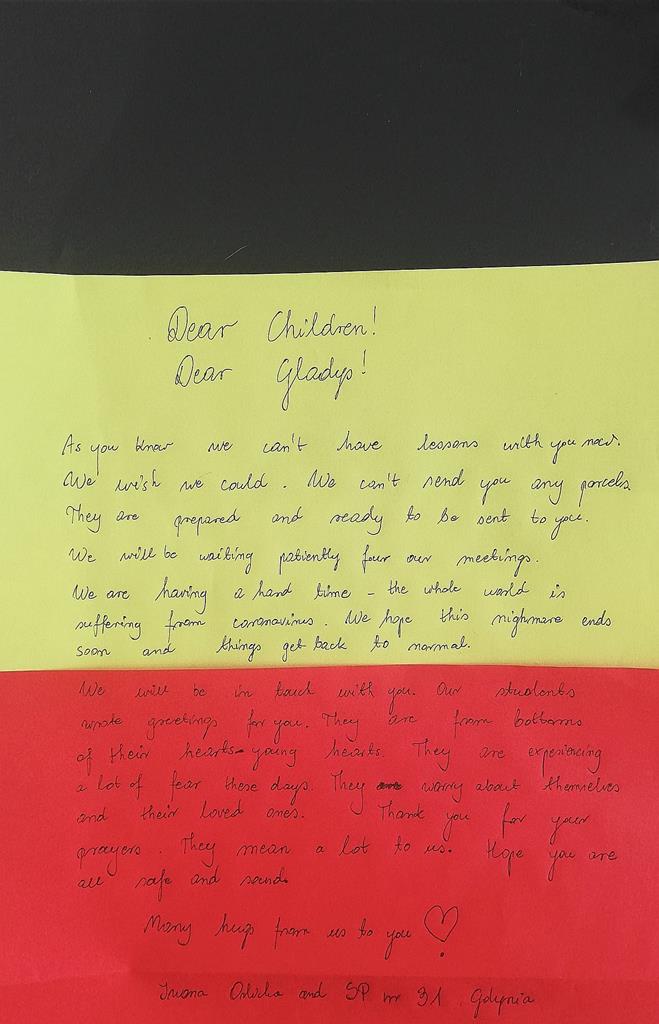 Dear Children!
Dear Gladys!
As you know we can't have lessons with you now.
We wish we could. We can't send you any parcels.
They are prepared and ready to be sent to you.
We will be waiting patiently four our meetings.
We are having a hard time - the whole world is
suffering from coronavirus. We hope this nighmare ends
soon and things get back to normal.
We will be in touch with you. Our students
wrote greetings for you. They are from bottoms
of their hearts - young hearts. They are expesiencing
a lot of fear these days. They worry about themselves
and their loved ones. Thank you for your
prayers. They mean a lot to us. Hope you are
all safe and sound.
Many hugs from us to you
Iwona and SP nr 31 Gdynia